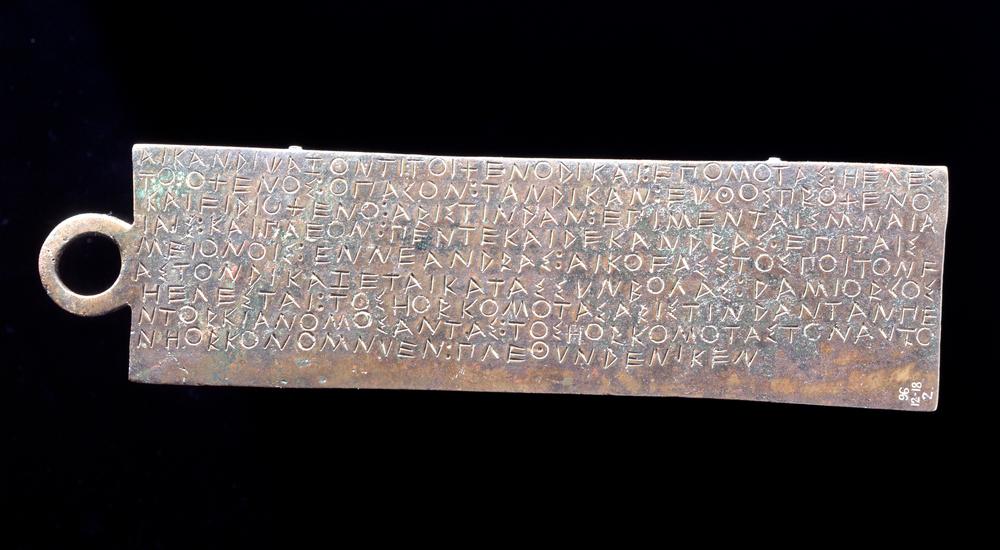 ΑΙΚΑΝΔΙΧΑΖΟΝΤΙΤΟΙΞΕΝΟΔΙΚΑΙ:ΕΠΟΜΟΤΑΣ:ΗΕΛΕΣ
ΤΟΟΞΕΝΟΣ:ΟΠΑΓΟΝ:ΤΑΝΔΙΚΑΝ:ΕΧΘΟΣΠΡΟΞΕΝΟ
ΚΑΙϜΙΔΙΟΞΕΝΟ:ΑΡΙΣΤΙΝΔΑΝ:ΕΠΙΜΕΝΤΑΙΣΜΝΑΙΑ
ΙΑΙΣ:ΚΑΙΠΛΕΟΝ:ΠΕΝΤΕΚΑΙΔΕΚΑΝΔΡΑΣ:ΕΠΙΤΑΙΣ
ΜΕΙΟΝΟΙΣ:ΕΝΝΕΑΝΔΡΑΣ:ΑΙΚΟϜΑΣΣΤΟΣΠΟΙΤΟΝϜ
ΑΣΤΟΝΔΙΚΑΖΕΤΑΙΚΑΤΑΣΣΥΝΒΟΛΑΣ:ΔΑΜΙΟΡΓΟΣ
ΗΕΛΕΣΤΑΙ:ΤΟΣΗΟΡΚΟΜΟΤΑΣΑΡΙΣΤΙΝΔΑΝΤΑΝΠΕ
ΝΤΟΡΚΙΑΝΟΜΟΣΑΝΤΑΣ:ΤΟΣΗΟΡΚΟΜΟΤΑΣΤΟΝΑΥΤΟ
ΝΗΟΡΚΟΝΟΜΝΥΕΝ:ΠΛΕΘΥΝΔΕΝΙΚΕΝ
96
12-18
2